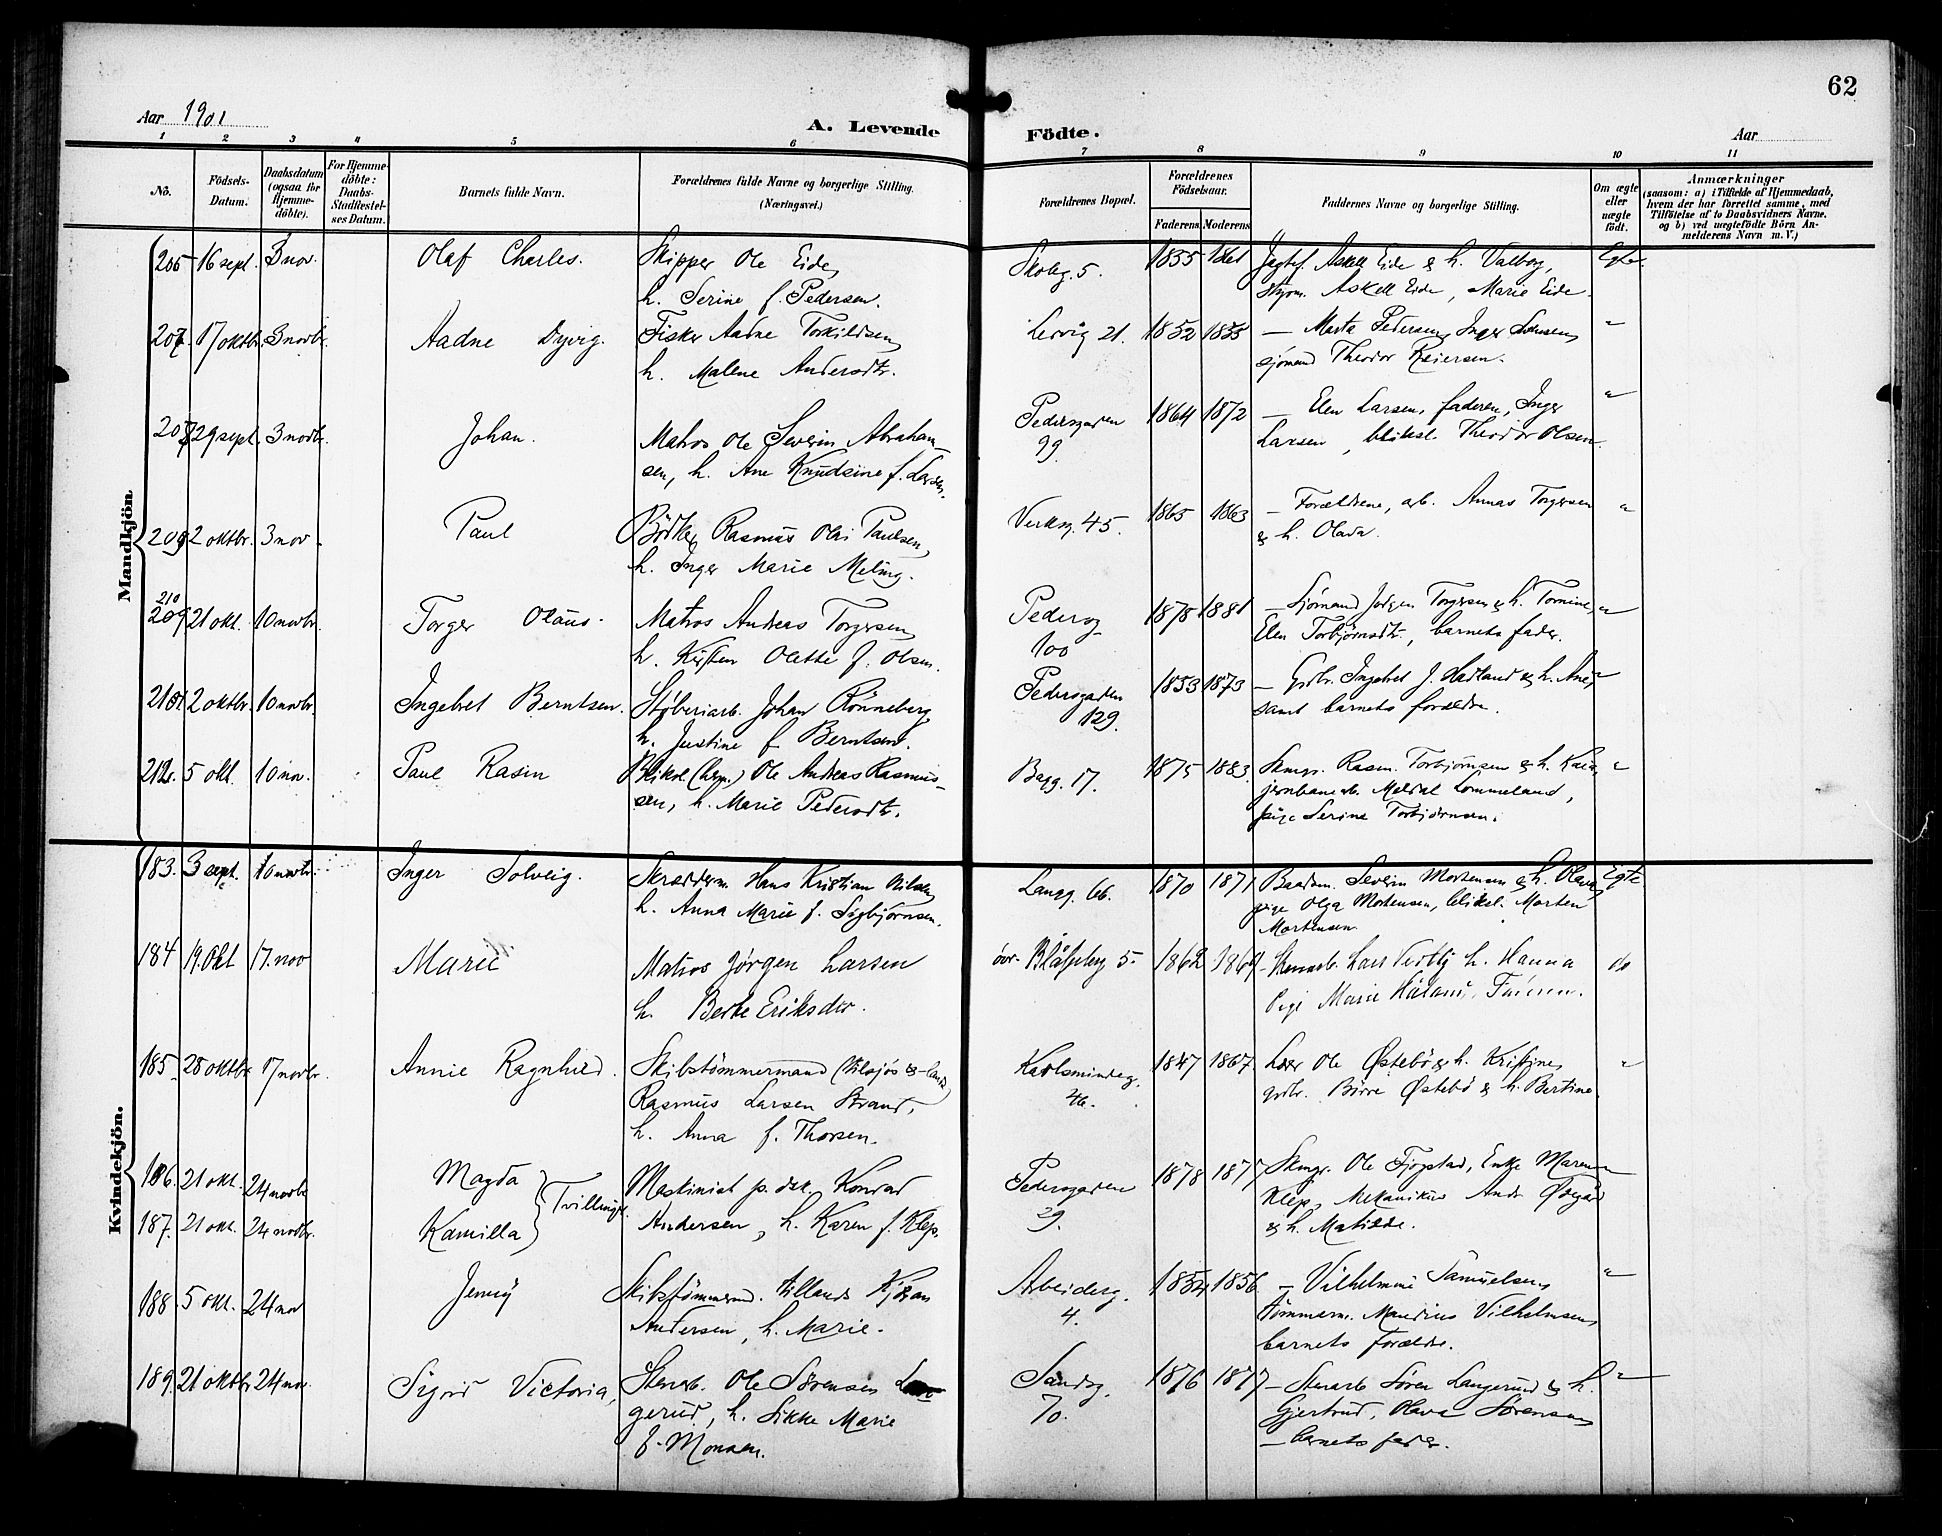 62
Aar 1901
A. Levende Födte.
Aar
1 2 3 4 5 6 7 8 9 10 11
Nö.
Födsels-Datum.
Daabsdatum (ogsaa for Hjemme-döbte).
For Hjemme-döbte: Daabs-Stadfæstel-ses Datum.
Barnets fulde Navn.
Forældrenes fulde Navne og borgerlige Stilling. (Næringsvei.)
Forældrenes Bopæl.
Forældrenes Födselsaar.
Faderens Moderens
Faddernes Navne og borgerlige Stilling.
Om ægte eller uægte födt.
Anmærkninger
(saasom: a) i Tilfælde af Hjemmedaab, hvem der har forrettet samme, med Tilföielse af to Daabsvidners Navne. og b) ved uægtefödte Börn Anmelderens Navn m. V.)
Mandkjön
16 sept. 3 nov. Olaf Charles. Skipper Ole Eide,
h. Serine f. Pedersen.
Skoleg. 5. 1855 1861 Askell Eide & h. Valborg,
styrm. Askell Eide, Marie Eide.
207. 17 oktbr. 3 novbr. Aadne Dyvig. Fisker Aadne Torkildsen,
h. Malene Andersdtr.
Lervig 21. 1852 1855 — Marta Pedersen, Inger
sjömand Theodor Reiersen.
208 29 sept. 3 novbr. Johan. Matros Ole Severin Abraham-
sen, h. Ane Knudsine f. Larsen.
Pedersgaden
99. 1864 1872 — Elen Larsen, faderen, Inger
Larsen, bliksl. Theodor Olsen.
209 2 oktbr. 3 nov. Paul Bödker Rasmus Olai Paulsen,
h. Inger Marie Meling.
Verksg. 45. 1865 1863 — Forældrene, arb. Annas Torgersen
& h. Olava.
210
209 21 okt. 10 novbr. Torger Olaus. Matros Andreas Torgersen,
h. Kirsten Olette f. Olsen.
Pedersg
100 1878 1881 — Sjömand Jörgen Torgersen & h. Tomine,
Elen Torbjörnsdtr., barnets fader.
2 oktbr. 10 novbr. Ingebret Berntsen. Støberiarb. Johan Rönneberg,
h. Justine f. Berntsen.
Pedersgaden
129. 1853 1873 — Grdbr. Ingebret J. Hadland & h. Ane,
samt barnets forældre.
212. 5 okt. 10 nov. Paul Rasin Bliksl. Ole Andreas Rasmus-
sen, h. Marie Pedersdtr.
Bagg. 17. 1875 1883. Rasm. Torbjörnsen & h.
jernbanearb. Lommeland,
pige Serine Torbjörnsen.
Kvindekjön.
183. 3 sept. 10 novbr. Inger Solveig. Skrædderm. Hans Kristian Nilsen,
h. Anna Marie f. Sigbjörnsen.
Langg. 66. 1870 1871 Baadsm. Severin Mortensen & h. Olava, Egte
pige Olga Mortensen, bliksl. Morten
Mortensen.
184 19. Okt 17. nov Marie Matros Jörgen Larsen
h. Berte Eriksdtr.
övr. Blåsebg 5. 1862 1869 Lars h. Hanna do
Pige Marie Håland, Faderen.
185. 28 oktbr. 17 novbr. Annie Ragnhild. Skibstömmermand
Rasmus Larsen Strand,
h. Anna f. Thorsen.
Karlsmindeg.
46. 1847 1867. Lærer Ole Östebö & h. Kristine,
grdbr. Börre Östebö & h. Bertine.
186. 21 okt. 24 novbr Magda
187. 21 okt. 24 novbr. Kamilla
Tvillinger.
Maskinist p. dsk. Konrad
Andersen, h. Karen f. Klep.
Pedersgaden
29. 1878 1877 Ole Fjogstad, Enke Maren
Klep, Mekanikus Andr.
& h. Matilde.
188. 5 okt. 24 nov Jenny Skibstömmerm. tillands
Andersen, h. Marie.
Arbeiderg.
4. 1854 1856 — Vilhelmine Samuelsen,
tömmerm. Mandius Vilhelmsen,
barnets forældre.
189. 21 oktbr. 24 nov. Sigrid Victoria, Stenarb. Ole Sörensen Lan-
gerud, h. Sikke Marie
f. Monsen.
Sandsg.
70. 1876 1877 — Stenarb Sören Langerud & h.
Gjertrud, Olava Sörensen,
— barnets fader.